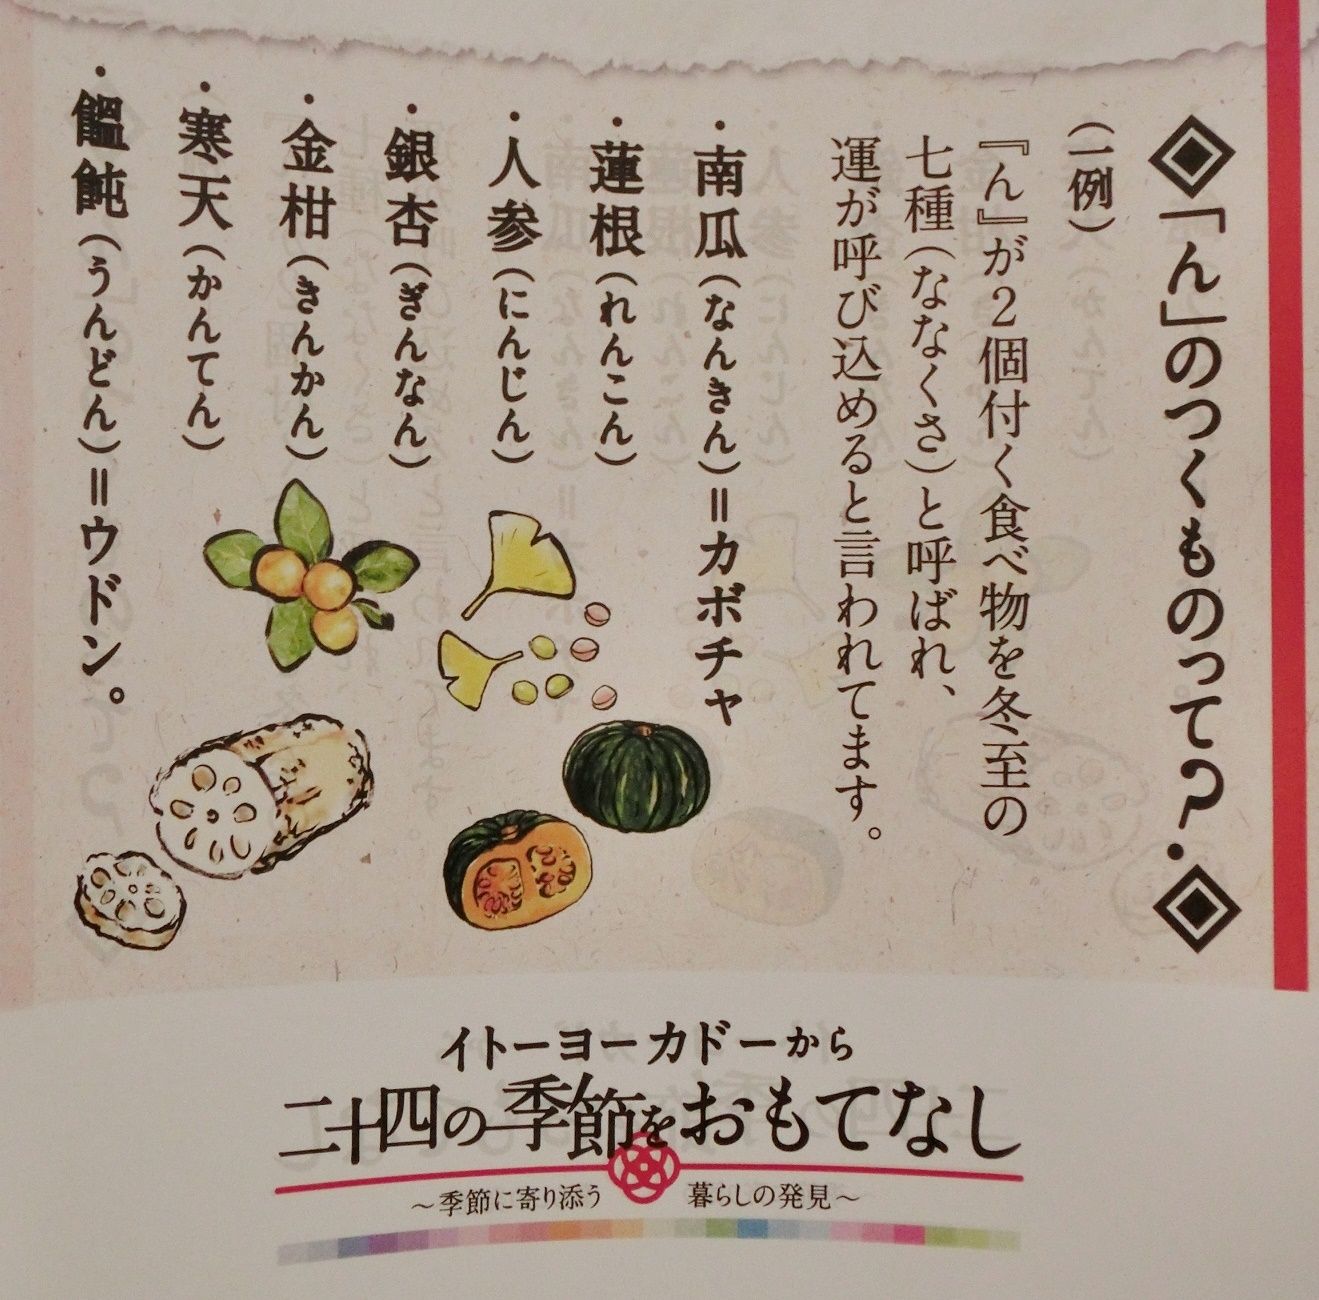 「ん」のつくものって?
(一例)
『ん』が2個付く食べ物を冬至の
七種(ななくさ)と呼ばれ、
運が呼び込めると言われてます。
・南瓜(なんきん)=カボチャ
・蓮根(れんこん)
・人参(にんじん)
・銀杏(ぎんなん)
・金柑(きんかん)
・寒天(かんてん)
・饂飩(うんどん)=ウドン。
イトーヨーカドーから
二十四の季節をおもてなし
～季節に寄り添う 暮らしの発見～